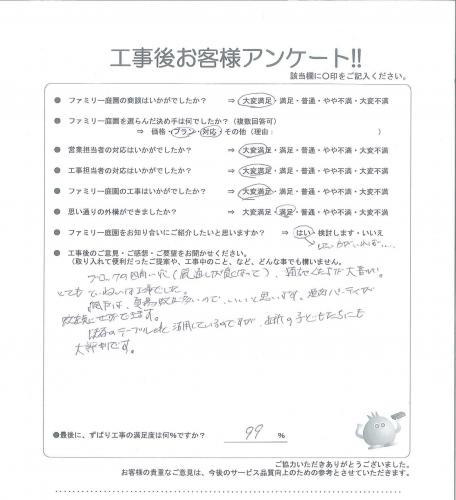 工事後お客様アンケート!!
該当欄に〇印をご記入ください。
● ファミリー庭園の商談はいかがでしたか? ⇒ 大変満足・満足・普通・やや不満・大変不満
● ファミリー庭園を選らんだ決め手は何でしたか?(複数回答可)
⇒ 価格・プラン・対応・その他(理由: )
● 営業担当者の対応はいかがでしたか? ⇒ 大変満足・満足・普通・やや不満・大変不満
● 工事担当者の対応はいかがでしたか? ⇒ 大変満足・満足・普通・やや不満・大変不満
● ファミリー庭園の工事はいかがでしたか? ⇒ 大変満足・満足・普通・やや不満・大変不満
● 思い通りの外構ができましたか? ⇒ 大変満足・満足・普通・やや不満・大変不満
● ファミリー庭園をお知り合いにご紹介したいと思いますか? ⇒ はい・検討します・いいえ
● 工事後のご意見・ご感想・ご要望をお聞かせください。
(取り入れて便利だったご提案や、工事中のこと、など、どんな事でも構いません。
ブロックの四角い穴(風通しが良くなって)、
とてもていねいな工事でした。
いいと思います。
のテーブル 活用しているのですが、 の子どもたちにも
大評判です。
●最後に、ずばり工事の満足度は何%ですか? 99 %
ご協力いただきありがとうございました。
お客様の貴重なご意見は、今後のサービス品質向上のための参考とさせていただきます。